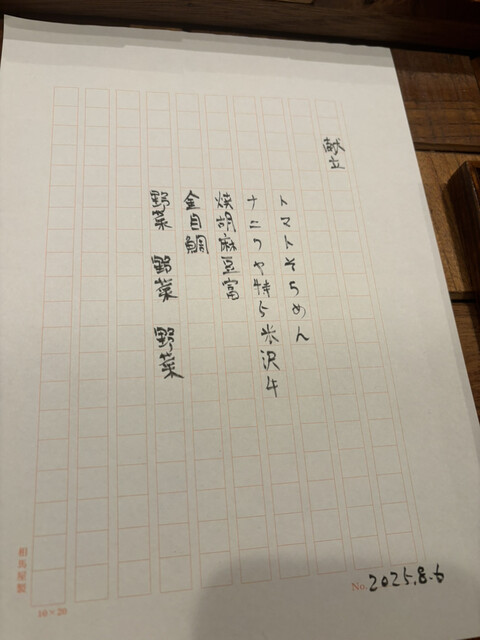 献立
トマトそうめん
ナニワヤ特与米沢牛
焼胡麻豆富
金目鯛
野菜 野菜 野菜
相馬屋製
10×20
No. 2025.8.6